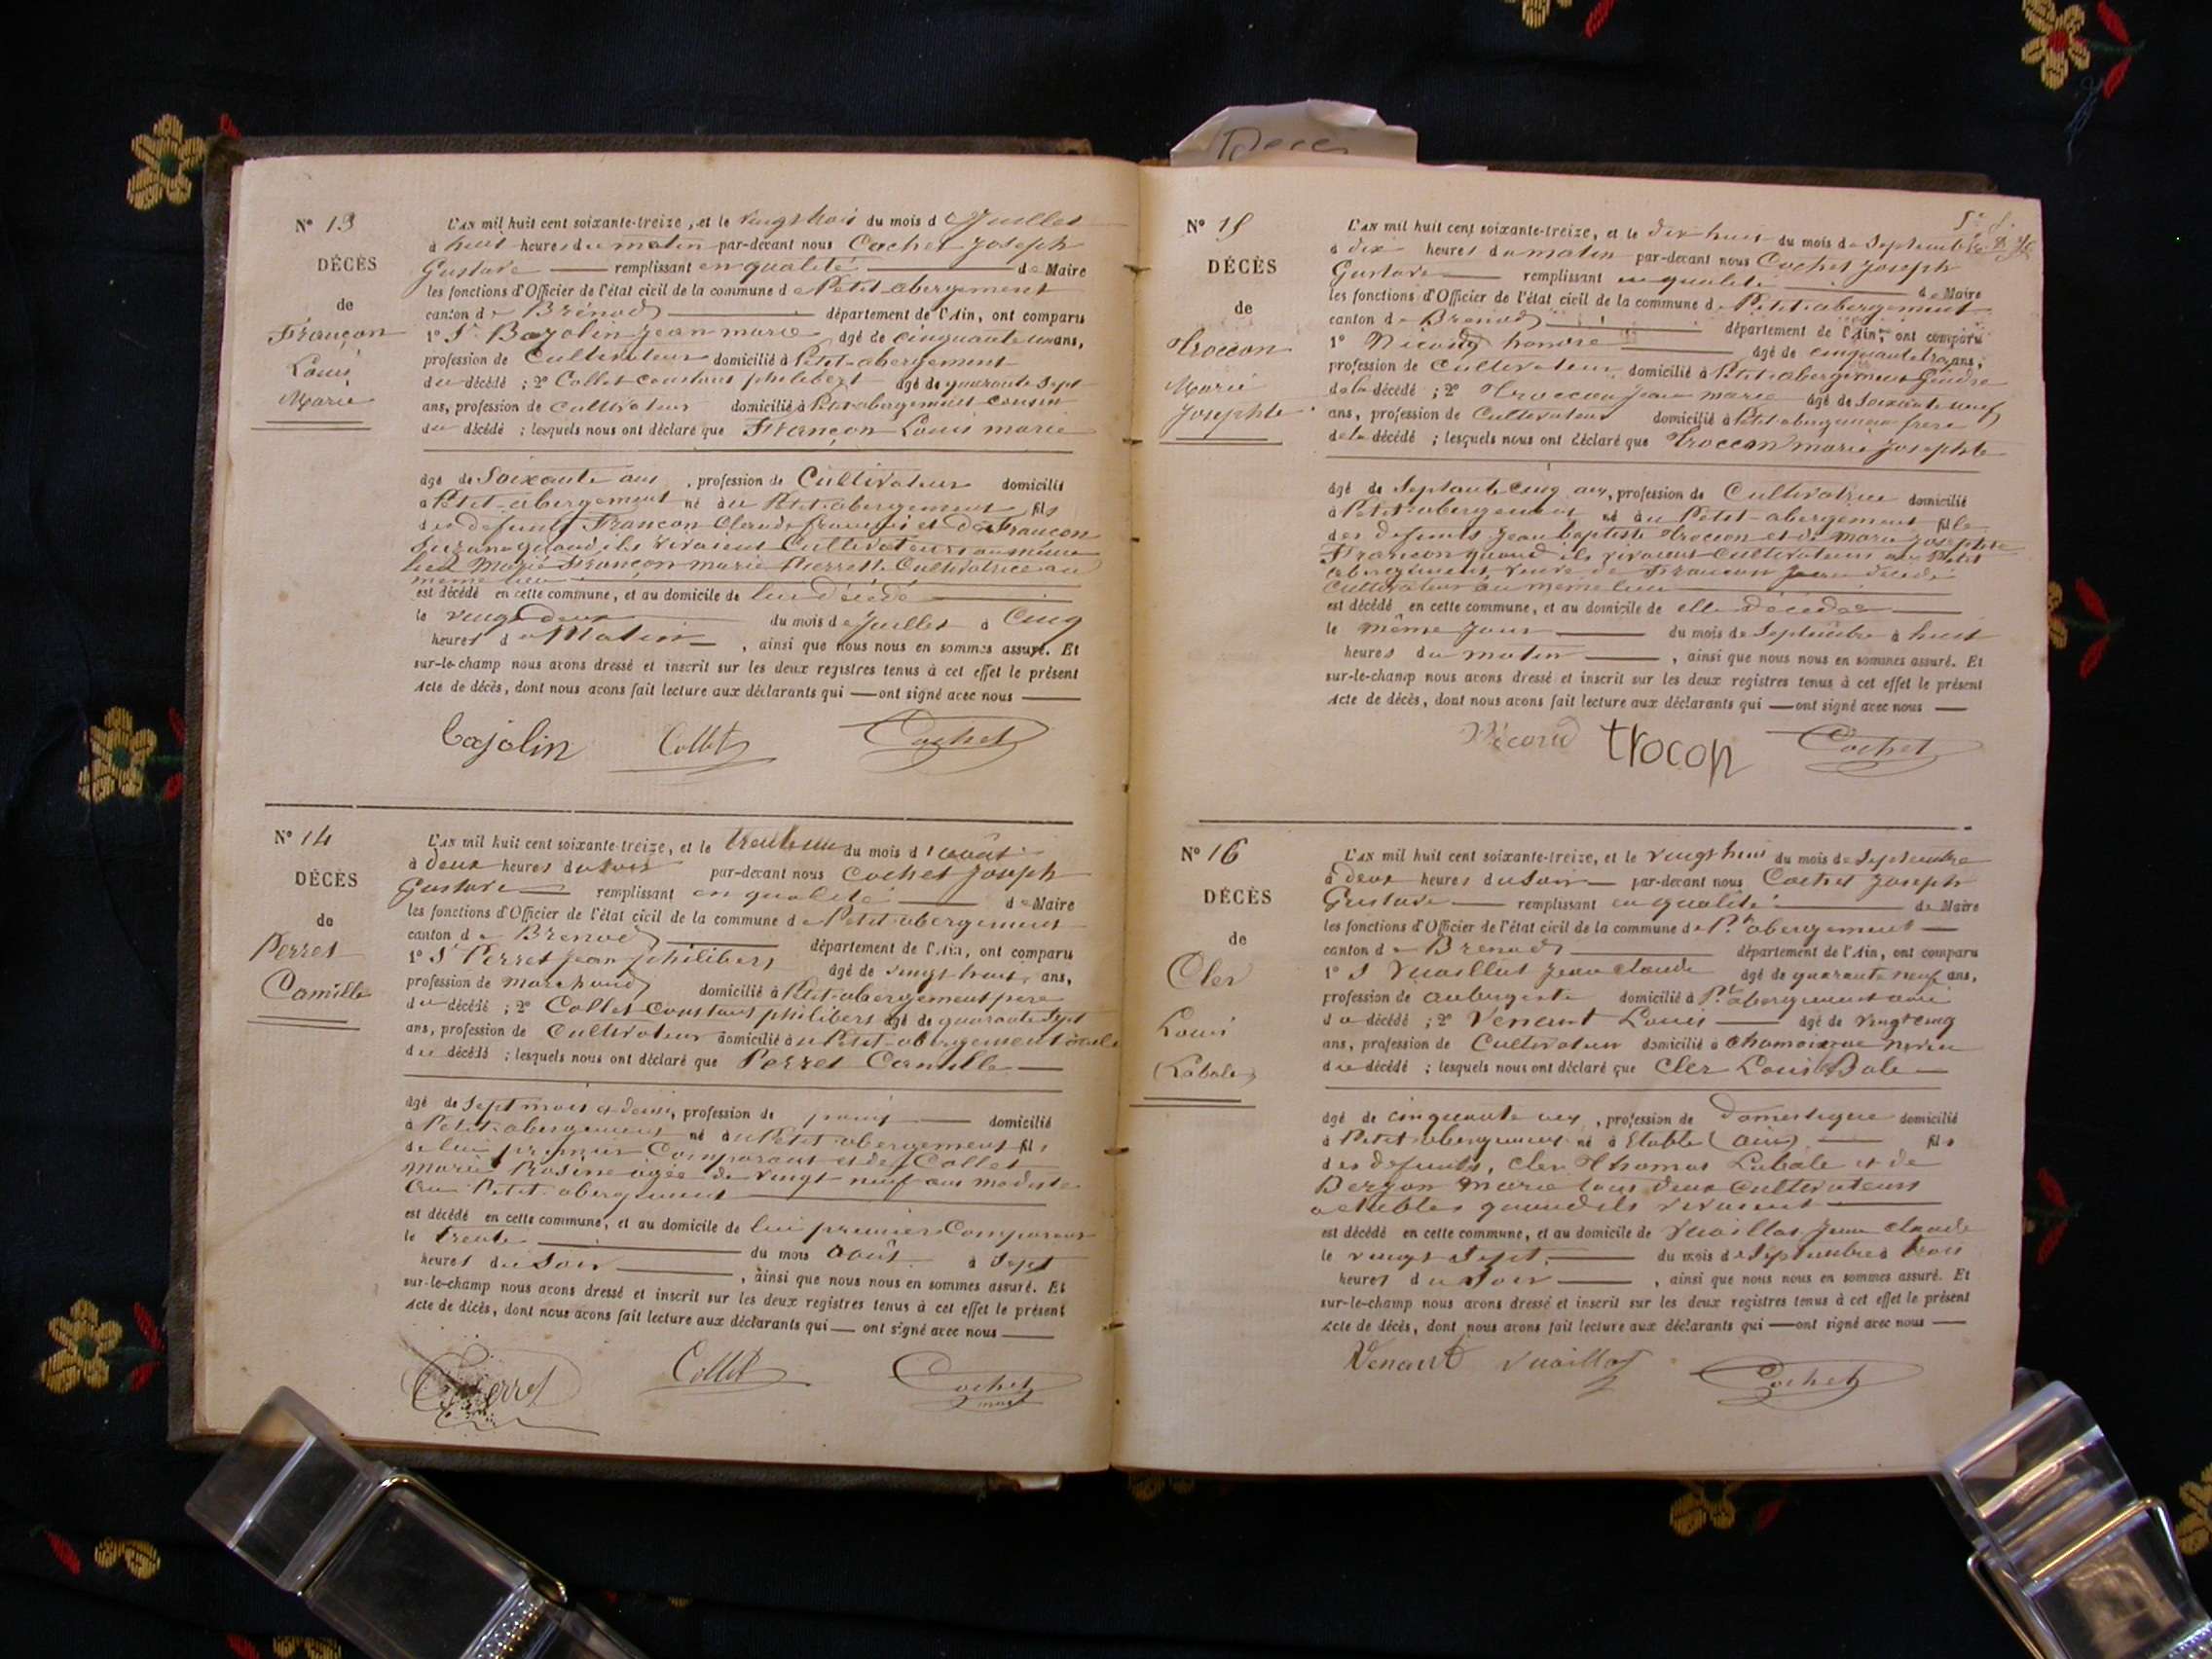 Décès
N° 13
DÉCÈS
de
Françon
Louis
Marie
L'AN mil huit cent soixante-treize, et le vingt trois du mois de Juillet
à huit heures du matin par-devant nous Cochet Joseph
Gustave remplissant en qualité de Maire
les fonctions d'Officier de l'état civil de la commune de Petit-abergement
canton de Brénod département de l'Ain, ont comparu
1° Sr Bajolin Jean marie âgé de cinquante un ans,
profession de Cultivateur domicilié à Petit-abergement
du décédé ; 2° Collet constant philibert âgé de quarante sept
ans, profession de cultivateur domicilié à Petit-abergement cousin
du décédé ; lesquels nous ont déclaré que Françon Louis marie
âgé de Soixante ans , profession de Cultivateur domicilié
à Petit-abergement né au Petit-abergement fils
des défunts Françon Claude françois et de Françon
Suzane quand ils vivaient Cultivateurs au même
lieu Marié Françon marie Pierrette Cultivatrice au
même lieu
est décédé en cette commune, et au domicile de lui décédé
le vingt deux du mois de Juillet à Cinq
heures du Matin , ainsi que nous nous en sommes assuré. Et
sur-le-champ nous avons dressé et inscrit sur les deux registres tenus à cet effet le présent
Acte de décès, dont nous avons fait lecture aux déclarants qui ont signé avec nous
Bajolin Collet Cochet
N° 14
DÉCÈS
de
Perret
Camille
L'AN mil huit cent soixante-treize, et le trente un du mois d'août
à deux heures du soir par-devant nous Cochet Joseph
Gustave remplissant en qualité de Maire
les fonctions d'Officier de l'état civil de la commune de Petit-abergement
canton de Brenod département de l'Ain, ont comparu
1° Sr Perret Jean philibert âgé de vingt huit ans,
profession de marchand domicilié à Petit-abergement père
du décédé ; 2° Collet Constant philibert âgé de quarante sept
ans, profession de Cultivateur domicilié au Petit-abergement oncle
du décédé ; lesquels nous ont déclaré que Perret Camille
âgé de Sept mois et demi, profession de domicilié
à Petit-abergement né au Petit-abergement fils
de lui premier Comparant et de Collet
Marie Rosine agée de vingt neuf ans modiste
au Petit-abergement
est décédé en cette commune, et au domicile de lui premier Comparant
le trente du mois Août à Sept
heures du Soir , ainsi que nous nous en sommes assuré. Et
sur-le-champ nous avons dressé et inscrit sur les deux registres tenus à cet effet le présent
Acte de décès, dont nous avons fait lecture aux déclarants qui ont signé avec nous
Perret Collet Cochet
N° 15
DÉCÈS
de
Troccon
Marie
Josephte
L'AN mil huit cent soixante-treize, et le dix huit du mois de Septembre
à dix heures du matin par-devant nous Cochet Joseph
Gustave remplissant en qualité de Maire
les fonctions d'Officier de l'état civil de la commune de Petit-abergement
canton de Brenod département de l'Ain, ont comparu
1° Nicoud honoré âgé de cinquante trois ans,
profession de Cultivateur domicilié à Petit-abergement Gendre
de la décédé ; 2° Troccon Jean marie âgé de Soixante neuf
ans, profession de Cultivateur domicilié à Petit-abergement frere
de la décédé ; lesquels nous ont déclaré que Troccon marie Josephte
âgé de Septante Cinq ans, profession de Cultivatrice domicilié
à Petit-abergement né au Petit-abergement fille
des defunts Jean baptiste Troccon et de marie Josephte
Françon quand ils vivaient Cultivateurs au Petit
abergement veuve de Françon Jean décédé
Cultivateur au même lieu
est décédé en cette commune, et au domicile de elle décédée
le même jour du mois de Septembre à huit
heures du matin , ainsi que nous nous en sommes assuré. Et
sur-le-champ nous avons dressé et inscrit sur les deux registres tenus à cet effet le présent
Acte de décès, dont nous avons fait lecture aux déclarants qui ont signé avec nous
Nicoud trocon Cochet
N° 16
DÉCÈS
de
Cler
Louis
(Labale)
L'AN mil huit cent soixante-treize, et le vingt huit du mois de Septembre
à deux heures du Soir par-devant nous Cochet Joseph
Gustave remplissant en qualité de Maire
les fonctions d'Officier de l'état civil de la commune de Pt abergement
canton de Brenod département de l'Ain, ont comparu
1° S Vuaillat Jean Claude âgé de quarante neuf ans,
profession de aubergiste domicilié à Pt abergement ami
du décédé ; 2° Venant Louis âgé de vingt cinq
ans, profession de Cultivateur domicilié à neveu
du décédé ; lesquels nous ont déclaré que Cler Louis Bale
âgé de cinquante ans , profession de Domestique domicilié
à Petit abergement né à Etable (ain) fils
des defunts, Cler Thomas Labale et de
Berzon Marie tous deux cultivateurs
a etables quand ils vivaient
est décédé en cette commune, et au domicile de Vuaillat Jean Claude
le vingt Sept du mois de Septembre à trois
heures du Soir , ainsi que nous nous en sommes assuré. Et
sur-le-champ nous avons dressé et inscrit sur les deux registres tenus à cet effet le présent
Acte de décès, dont nous avons fait lecture aux déclarants qui ont signé avec nous
Venant Vuaillat Cochet